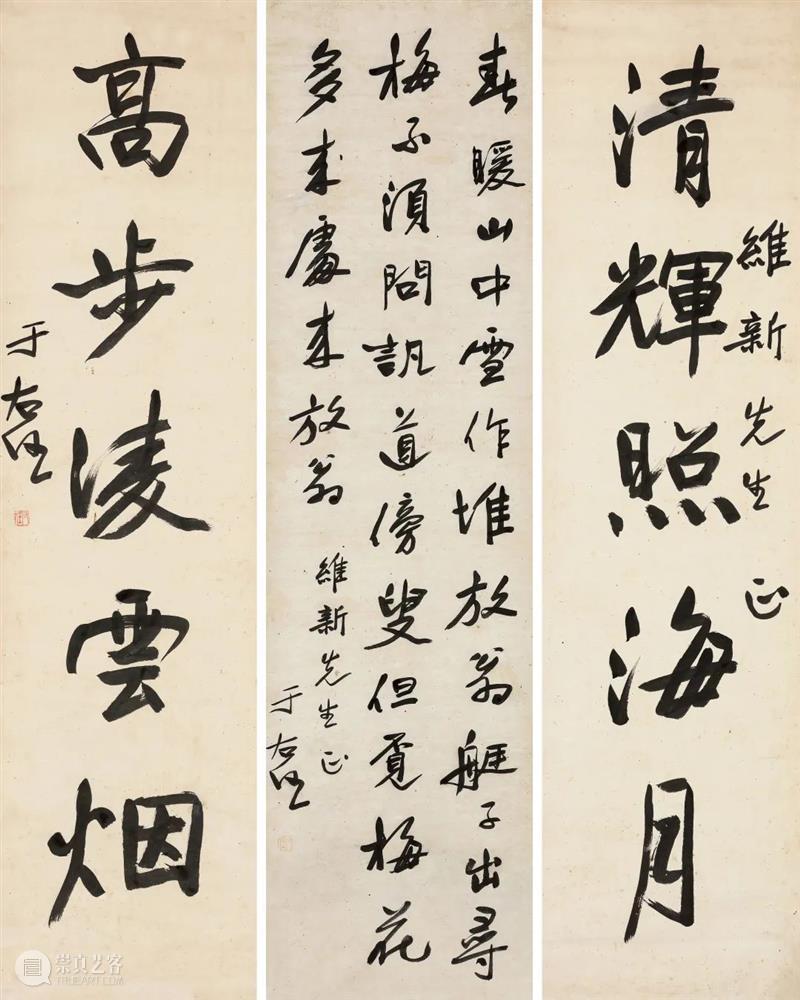 清輝照海月
維新先生正
春暖山中雪作堆放翁艇子出尋
梅不須問訊道傍叟但覓梅花
多来處来放翁
維新先生正
于右任
高步淩雲烟
于右任
崇真艺客
TRUEART.COM